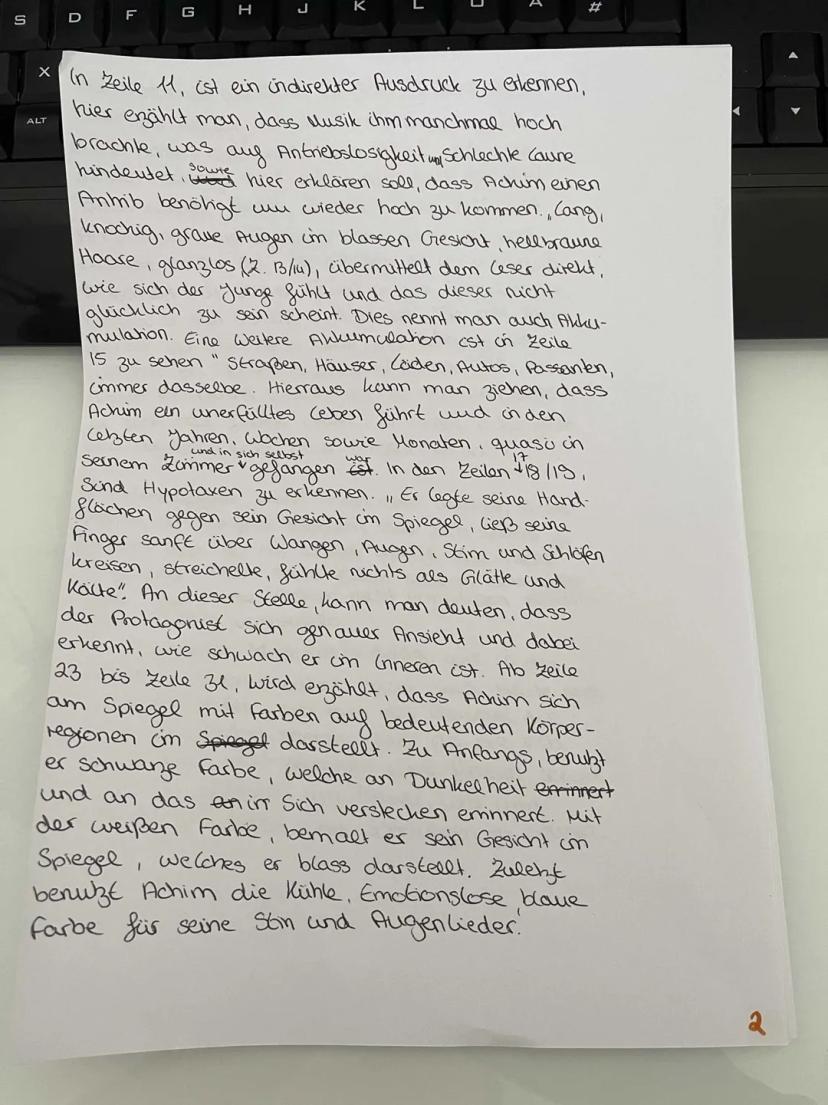 S D F G H J K L Ö Ä #
X
ALT
In Zeile 11, ist ein indirekter Ausdruck zu erkennen,
hier erzählt man, dass Musik ihm manchmal hoch
brachte, was auf Antriebslosigkeit und Schlechte Laune
hindeutet, sowie hier erklären soll, dass Achim einen
Antrib benötigt um wieder hoch zu kommen. „Lang,
knochig, graue Augen im blassen Gesicht, hellbraune
Haare, glanzlos (Z. 13/14), übermittelt dem Leser direkt,
wie sich der Junge fühlt und das dieser nicht
glücklich zu sein scheint. Dies nennt man auch Akku-
mulation. Eine weitere Akkumulation ist in Zeile
15 zu sehen " Straßen, Häuser, Läden, Autos, Passanten,
immer dasselbe. Hieraus kann man ziehen, dass
Achim ein unerfülltes Leben führt und in den
letzten Jahren, Wochen sowie Monaten, quasi in
seinem Zimmer und in sich selbst gefangen war. In den Zeilen 17 18/19,
Sind Hypotaxen zu erkennen. „Er legte seine Hand-
flächen gegen sein Gesicht im Spiegel, ließ seine
Finger sanft über Wangen, Augen, Stirn und Schläfen
kreisen, streichelte, fühlte nichts als Glätte und
Kälte". An dieser Stelle, kann man deuten, dass
der Protagonist sich genauer Ansieht und dabei
erkennt, wie schwach er im Inneren ist. Ab Zeile
23 bis Zeile 31, wird erzählt, dass Achim sich
am Spiegel mit Farben auf bedeutenden Körper-
regionen im Spiegel darstellt. Zu Anfangs, benutzt
er schwarze Farbe, welche an Dunkelheit erinnert
und an das in Sich verstecken erinnert. Mit
der weißen Farbe, bemalt er sein Gesicht im
Spiegel, welches er blass darstellt. Zuletzt
benutzt Achim die Kühle, Emotionslose, blaue
Farbe für seine Stirn und Augenlieder.
2